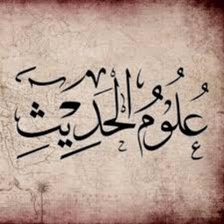 عُلُومُ الحَدِيثِ